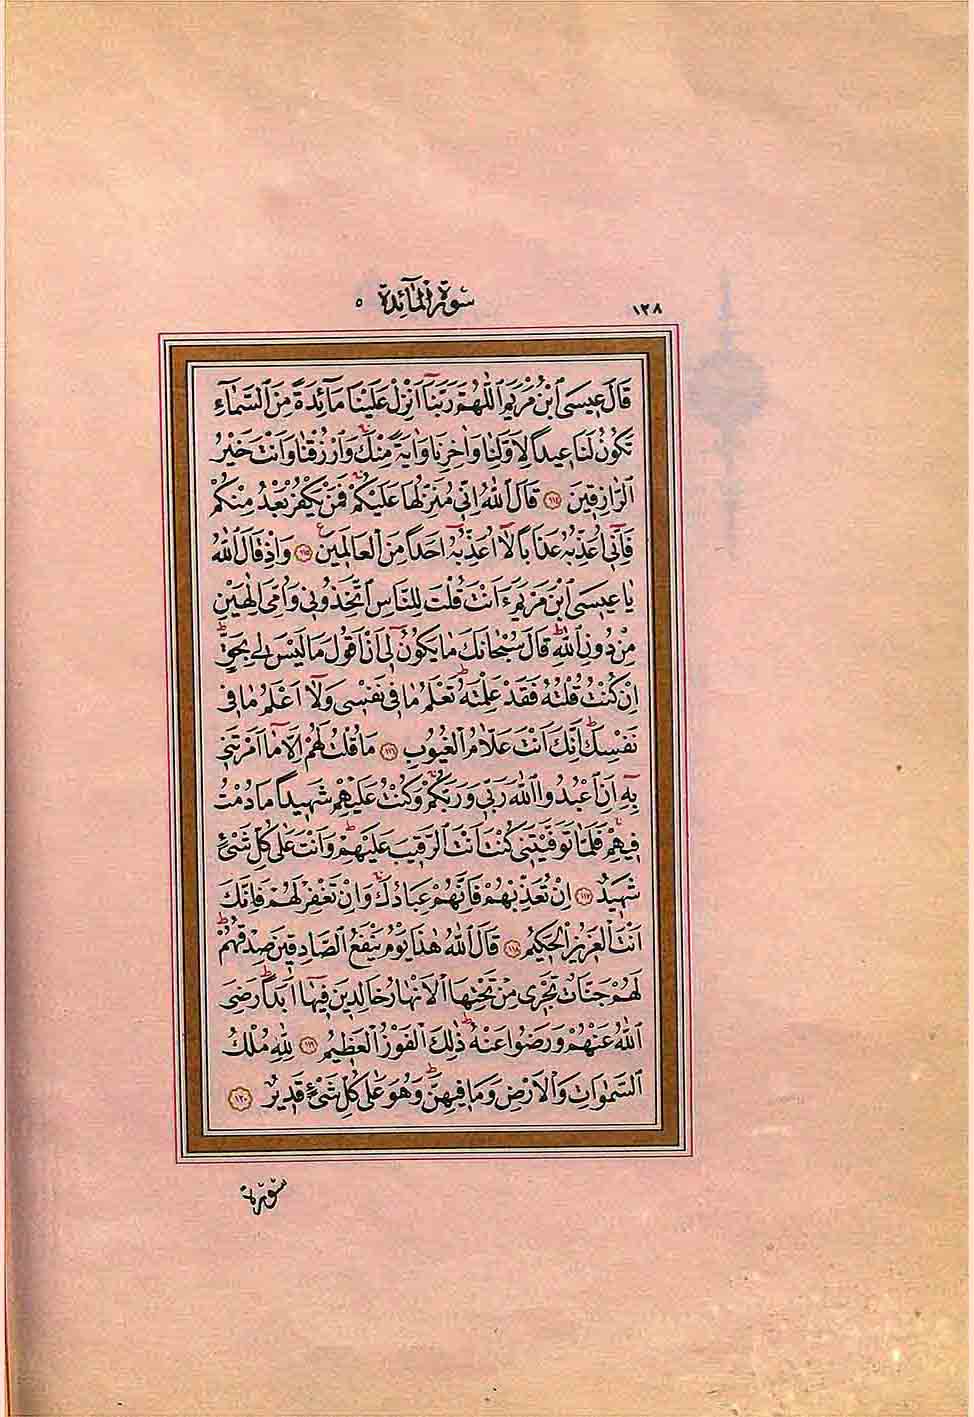 ١٢٨
سورة المآئدة ٥
قَالَ عِيسَى ابْنُ مَرْيَمَ اللّٰهُمَّ رَبَّنَٓا اَنْزِلْ عَلَيْنَا مَٓائِدَةً مِنَ السَّمَٓاءِ
تَكُونُ لَنَا عِيداً لِاَوَّلِنَا وَاٰخِرِنَا وَاٰيَةً مِنْكَۚ وَارْزُقْنَا وَاَنْتَ خَيْرُ
الرَّازِقِينَ ﴿١١٤﴾ قَالَ اللّٰهُ اِنِّي مُنَزِّلُهَا عَلَيْكُمْۚ فَمَنْ يَكْفُرْ بَعْدُ مِنْكُمْ
فَاِنِّٓي اُعَذِّبُهُ عَذَاباً لَٓا اُعَذِّبُهُٓ اَحَداً مِنَ الْعَالَمِينَ۟ ﴿١١٥﴾ وَاِذْ قَالَ اللّٰهُ
يَا عِيسَى ابْنَ مَرْيَمَ ءَاَنْتَ قُلْتَ لِلنَّاسِ اتَّخِذُونِي وَاُمِّيَ اِلٰهَيْنِ
مِنْ دُونِ اللّٰهِۜ قَالَ سُبْحَانَكَ مَا يَكُونُ لِٓي اَنْ اَقُولَ مَا لَيْسَ لِي بِحَقٍّۜ
اِنْ كُنْتُ قُلْتُهُ فَقَدْ عَلِمْتَهُۜ تَعْلَمُ مَا فِي نَفْسِي وَلَٓا اَعْلَمُ مَا فِي
نَفْسِكَۜ اِنَّكَ اَنْتَ عَلَّامُ الْغُيُوبِ ﴿١١٦﴾ مَا قُلْتُ لَهُمْ اِلَّا مَٓا اَمَرْتَنِي
بِهِٓ اَنِ اعْبُدُوا اللّٰهَ رَبِّي وَرَبَّكُمْۚ وَكُنْتُ عَلَيْهِمْ شَهِيداً مَا دُمْتُ
فِيهِمْۚ فَلَمَّا تَوَفَّيْتَنِي كُنْتَ اَنْتَ الرَّقِيبَ عَلَيْهِمْۜ وَاَنْتَ عَلٰى كُلِّ شَيْءٍ
شَهِيدٌ ﴿١١٧﴾ اِنْ تُعَذِّبْهُمْ فَاِنَّهُمْ عِبَادُكَۚ وَاِنْ تَغْفِرْ لَهُمْ فَاِنَّكَ
اَنْتَ الْعَزِيزُ الْحَكِيمُ ﴿١١٨﴾ قَالَ اللّٰهُ هٰذَا يَوْمُ يَنْفَعُ الصَّادِقِينَ صِدْقُهُمْۜ
لَهُمْ جَنَّاتٌ تَجْرِي مِنْ تَحْتِهَا الْاَنْهَارُ خَالِدِينَ فِيهَٓا اَبَداًۜ رَضِيَ
اللّٰهُ عَنْهُمْ وَرَضُوا عَنْهُۜ ذٰلِكَ الْفَوْزُ الْعَظِيمُ ﴿١١٩﴾ لِلّٰهِ مُلْكُ
السَّمٰوَاتِ وَالْاَرْضِ وَمَا فِيهِنَّۜ وَهُوَ عَلٰى كُلِّ شَيْءٍ قَدِيرٌ ﴿١٢٠﴾
سورة